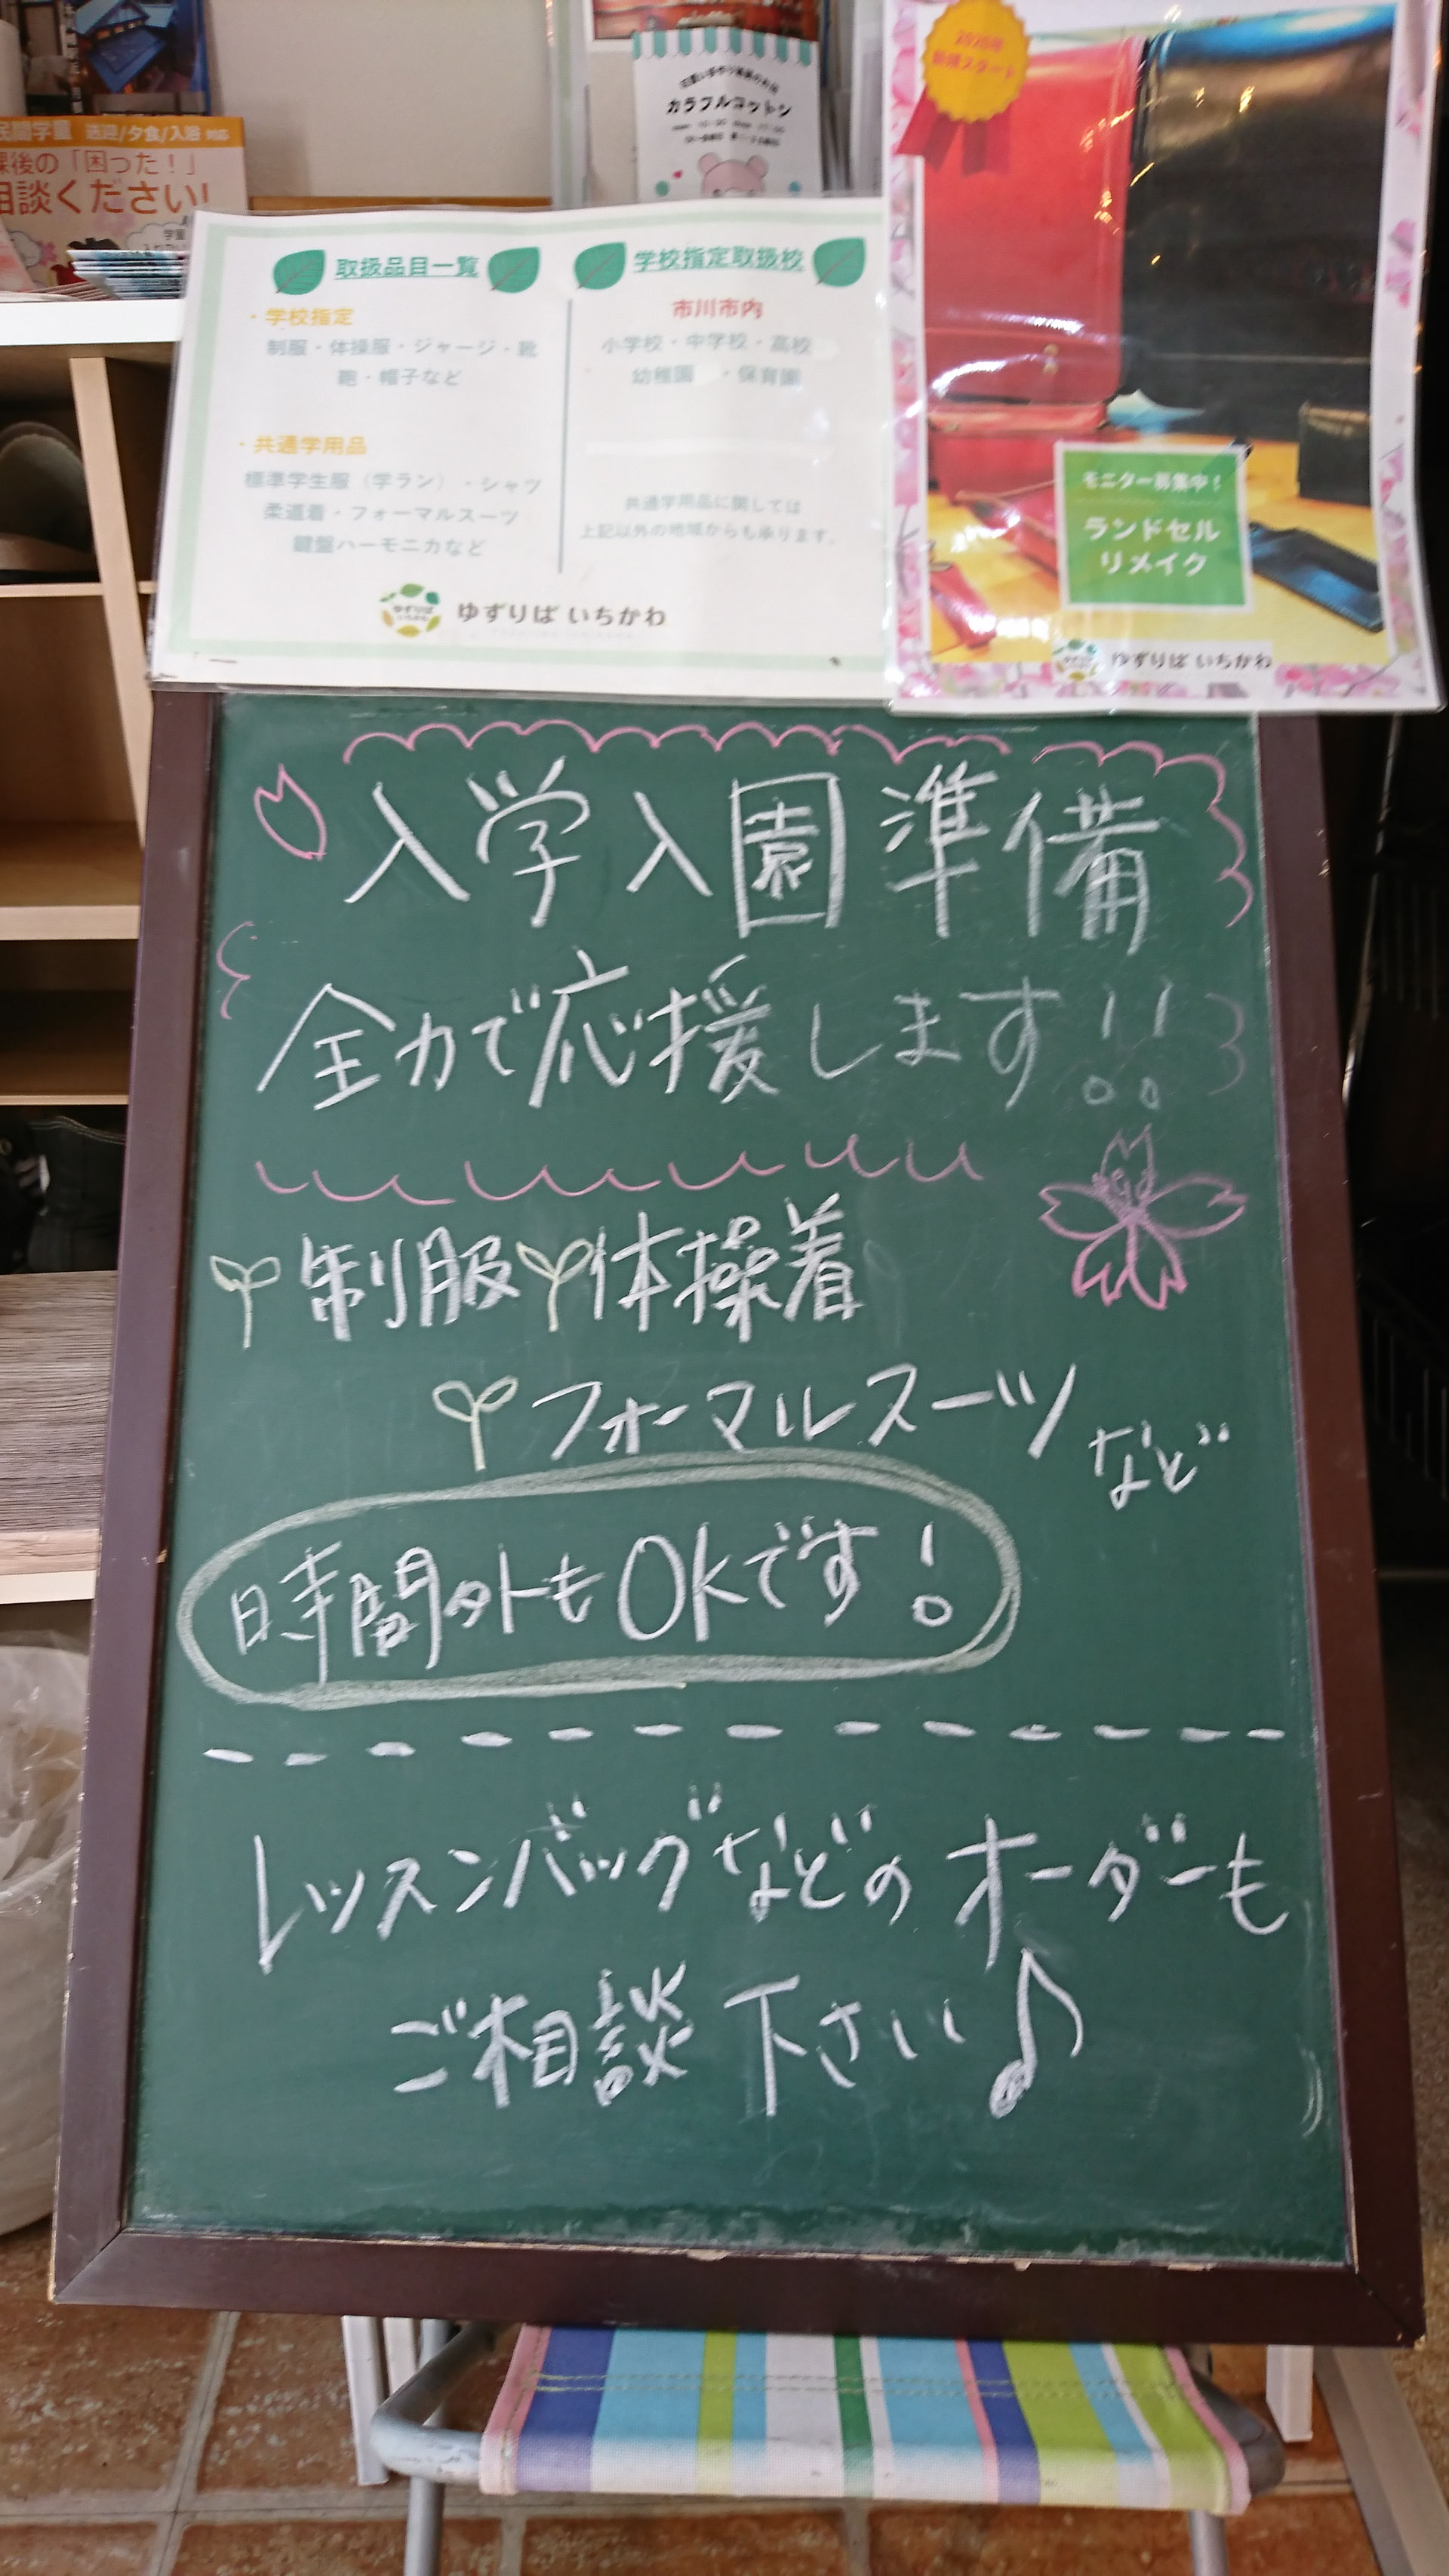 民間学童 送迎/夕食/入浴 対応
課後の「困った！」
相談ください!
学童
カラフルコットン
取扱品目一覧
・学校指定
制服・体操服・ジャージ・靴
鞄・帽子など
・共通学用品
標準学生服（学ラン）・シャツ
柔道着・フォーマルスーツ
鍵盤ハーモニカなど
学校指定取扱校
市川市内
小学校・中学校・高校
幼稚園・保育園
共通学用品に関しては
上記以外の地域からも承ります。
ゆずりば いちかわ
モニター募集中！
ランドセル
リメイク
ゆずりば いちかわ
入学入園準備
全力で応援します!!
制服 体操着
フォーマルスーツ
など
時間外もOKです!
レッスンバッグなどのオーダーも
ご相談下さい♪